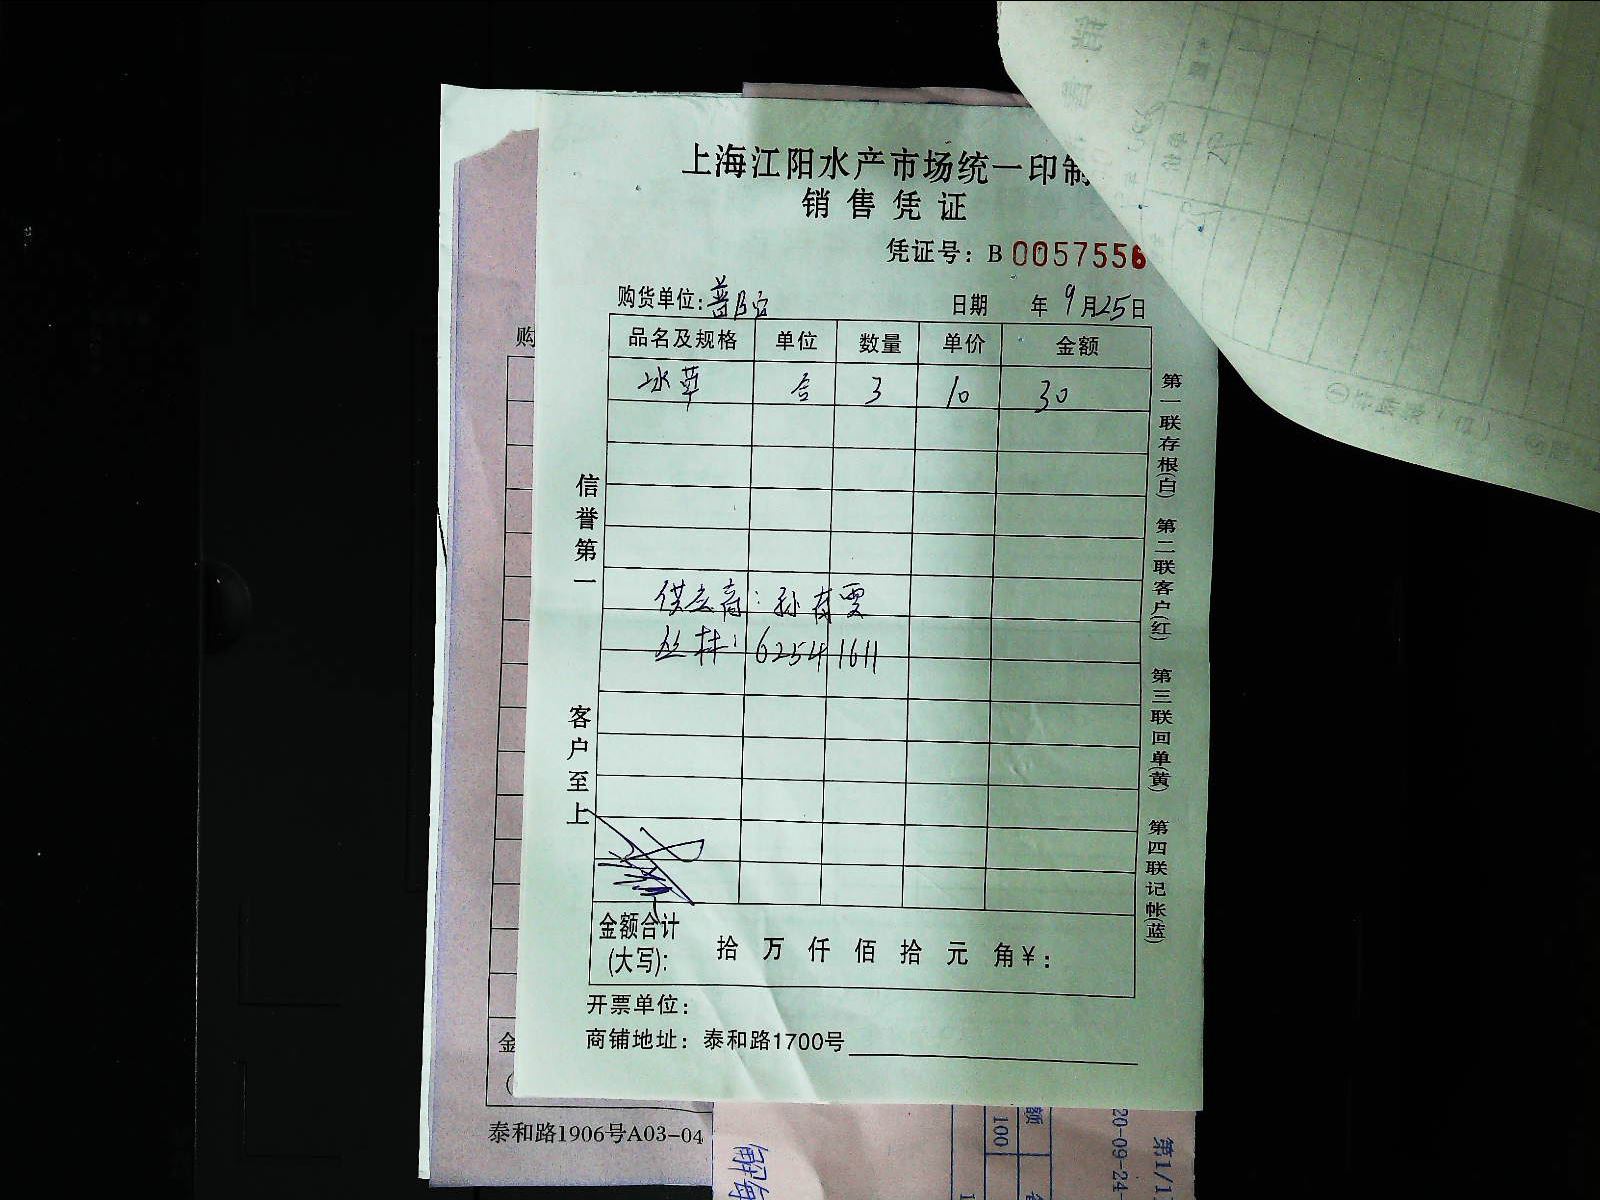 上海江阳水产市场统一印制
销售凭证
凭证号：B 0057556
购货单位: 日期 年 9月25日
品名及规格 单位 数量 单价 金额
冰草 合 3 10 30
供应商：孙有雯
丛林：62541611
信誉第一
客户至上
金额合计(大写): 拾 万 仟 佰 拾 元 角 ¥：
开票单位：
商铺地址：泰和路1700号
第一联存根(白) 第二联客户(红) 第三联回单(黄) 第四联记帐(蓝)
购
金
泰和路1906号A03-04
额
100
20-09-24-
第1/1